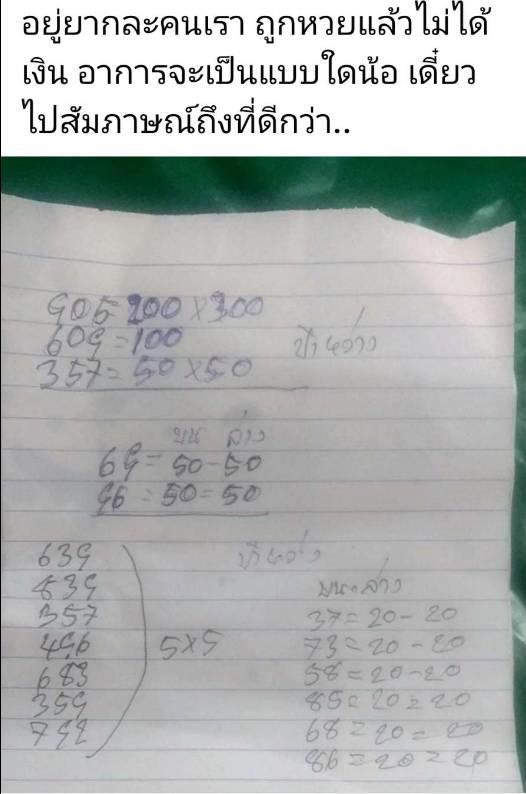 อยู่ยากละคนเรา ถูกหวยแล้วไม่ได้
เงิน อาการจะเป็นแบบใดน้อ เดี๋ยว
ไปสัมภาษณ์ถึงที่ดีกว่า..
905=200×300
609=100
357=50×50
บน ล่าง
69=50-50
96=50=50
639
539
357
496
683
359
792
5×5
บน-ล่าง
37=20-20
73=20-20
58=20-20
85=20=20
68=20=20
86=20=20